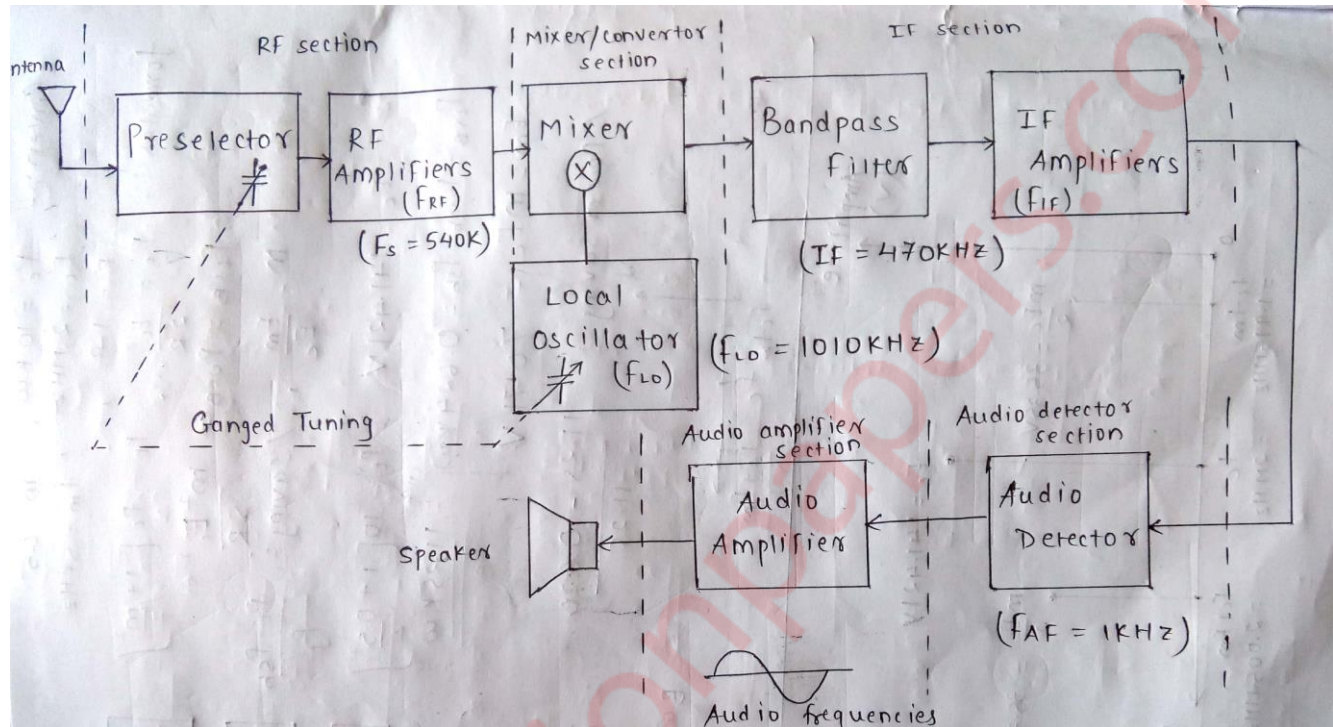 ntenna
RF section
Mixer/convertor
section
IF section
Preselector
RF
Amplifiers
(FRF)
(Fs = 540K)
Mixer
X
Bandpass
Filter
IF
Amplifiers
(fIF)
(IF = 470KHz)
Local
Oscillator
(fLO)
(fLO = 1010KHz)
Ganged Tuning
Audio amplifier
section
Audio detector
section
Speaker
Audio
Amplifier
Audio
Detector
(fAF = 1KHz)
Audio frequencies
onpapers.com